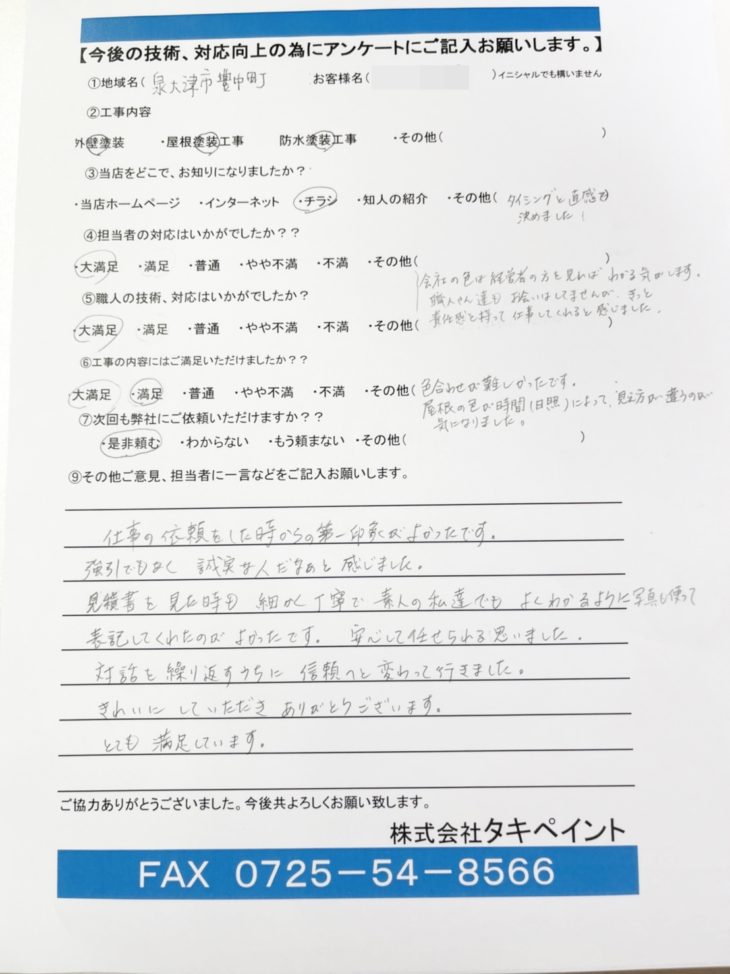 【今後の技術、対応向上の為にアンケートにご記入お願いします。】
①地域名( 泉大津市豊中町 お客様名( )イニシャルでも構いません
②工事内容
外壁塗装 ・屋根塗装工事 防水塗装工事 ・その他( )
③当店をどこで、お知りになりましたか?
・当店ホームページ ・インターネット ・チラシ ・知人の紹介 ・その他( タイミングと直感で
決めました!
④担当者の対応はいかがでしたか??
・大満足 ・満足 ・普通 ・やや不満 ・不満 ・その他( )
会社の色は経営者の方を見ればわかる気がします。
職人さん達もお会いはしてませんが、きっと
責任感を持って仕事してくれると感じました。
⑤職人の技術、対応はいかがでしたか?
・大満足 ・満足 ・普通 ・やや不満 ・不満 ・その他( )
⑥工事の内容にはご満足いただけましたか??
大満足 ・満足 ・普通 ・やや不満 ・不満 ・その他( 色合わせが難しかったです。
屋根の色が時間(日照)によって、見え方が違うのが
気になりました。
⑦次回も弊社にご依頼いただけますか??
・是非頼む ・わからない ・もう頼まない ・その他( )
⑨その他ご意見、担当者に一言などをご記入お願いします。
仕事の依頼をした時からの第一印象がよかったです。
強引でもなく 誠実な人だなぁと感じました。
見積書を見た時も 細かく丁寧で 素人の私達でも よくわかるように写真も使って
表記してくれたのが よかったです。 安心して任せられる思いました。
対話を繰り返すうちに 信頼へと変わって行きました。
きれいに していただき ありがとうございます。
とても 満足しています。
ご協力ありがとうございました。今後共よろしくお願い致します。
株式会社タキペイント
FAX 0725－54－8566